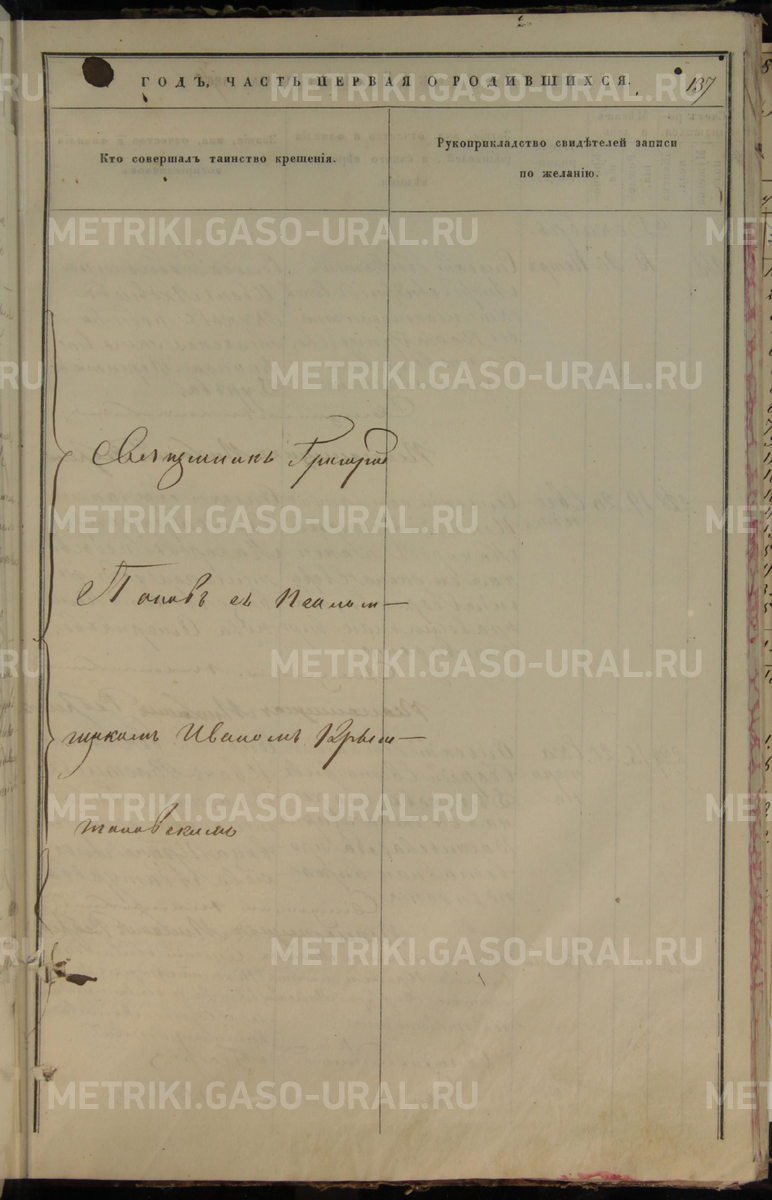 137
ГОДЪ, ЧАСТЬ ПЕРВАЯ О РОДИВШИХСЯ.
Кто совершалъ таинство крещенія.
Рукоприкладство свидѣтелей записи
по желанію.
Священникъ Григорій
Поповъ съ Псалом-
щикомъ Иваномъ Крыж-
ановскимъ
METRIKI.GASO-URAL.RU